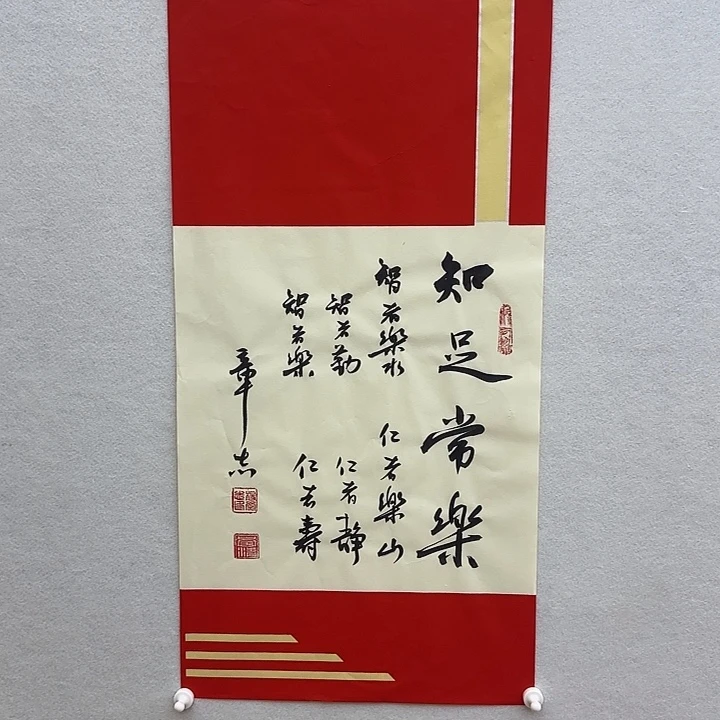 知足常樂
智者樂水 仁者樂山
智者勤 仁者静
智者樂 仁者壽
章志